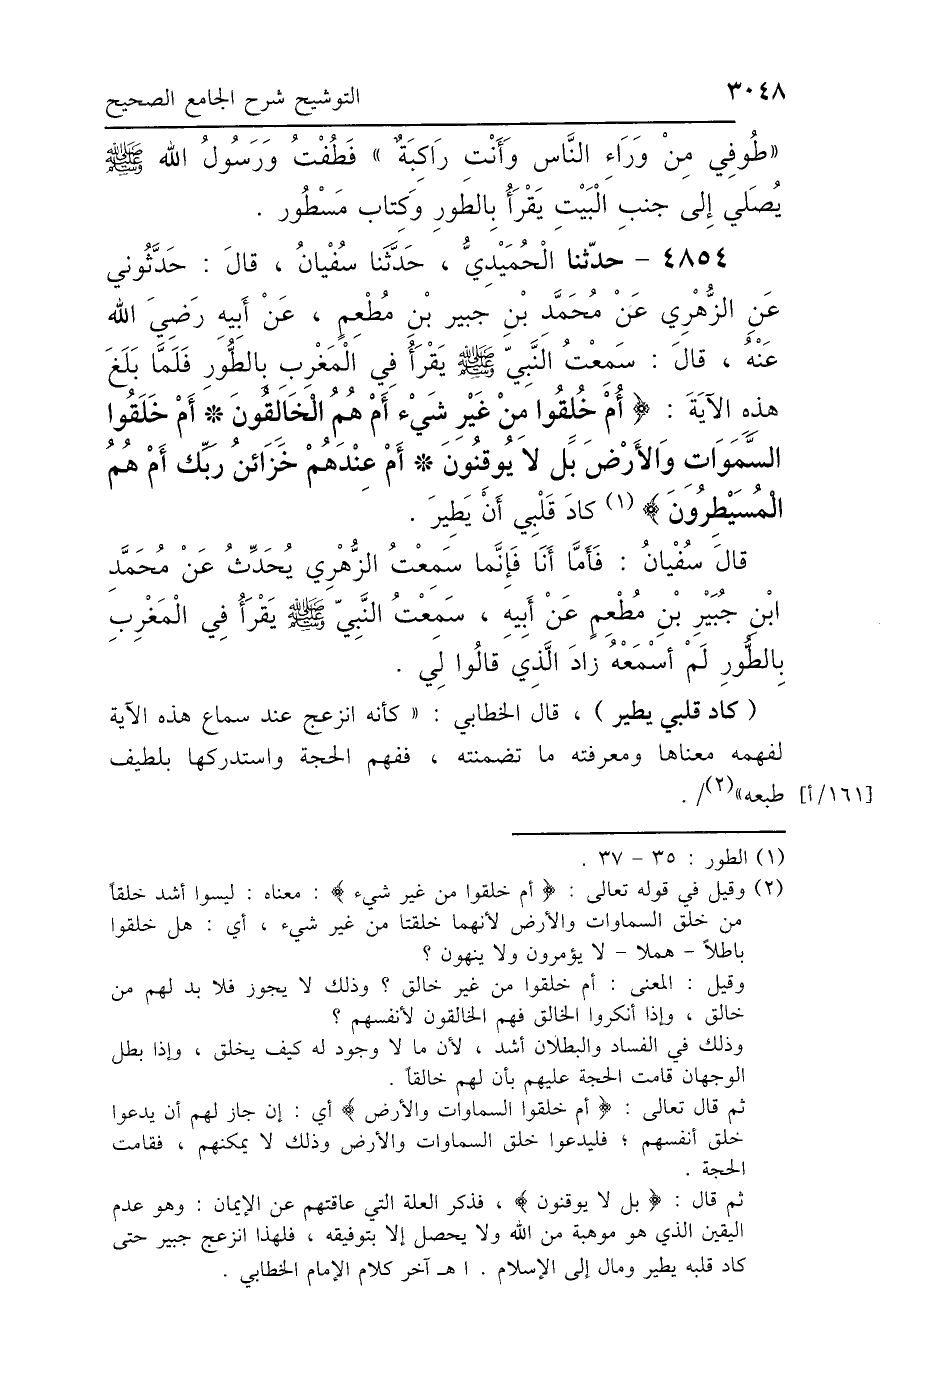 ٣٠٤٨ التوشيح شرح الجامع الصحيح
«طُوفِي مِنْ وَرَاءِ النَّاسِ وَأَنْتِ رَاكِبَةٌ» فَطُفْتُ وَرَسُولُ الله ﷺ
يُصَلي إلى جنبِ الْبَيْتِ يَقْرَأُ بِالطورِ وَكِتاب مَسْطُور .
٤٨٥٤ - حدّثنا الْحُمَيْدِيُّ ، حَدَّثَنا سُفْيانُ ، قالَ : حَدَّثُوني
عَنِ الزُّهْرِي عَنْ مُحَمَّدِ بْنِ جبيرِ بْنِ مُطْعِمٍ ، عَنْ أَبِيهِ رَضِيَ الله
عَنْهُ ، قالَ : سَمِعْتُ النَّبيّ ﷺ يَقْرَأُ فِي الْمَغْرِبِ بِالطُّورِ فَلَمَّا بَلَغَ
هذِهِ الآيَةَ : ﴿ أَمْ خُلِقُوا مِنْ غَيْرِ شَيْءٍ أَمْ هُمُ الْخَالِقُونَ * أَمْ خَلَقُوا
السَّمَوَات وَالأَرْضَ بَل لا يُوقِنُونَ * أَمْ عِنْدَهُمْ خَزَائِنُ رَبِّكَ أَمْ هُمُ
الْمُسَيْطِرُونَ ﴾ (١) كادَ قَلْبِي أَنْ يَطِيرَ .
قالَ سُفْيانُ : فَأَمَّا أَنَا فَإِنَّما سَمِعْتُ الزُّهْرِي يُحَدِّثُ عَنْ مُحَمَّدِ
ابْنِ جُبَيْرِ بْنِ مُطْعِمٍ عَنْ أَبِيهِ ، سَمِعْتُ النَّبيّ ﷺ يَقْرَأُ فِي الْمَغْرِبِ
بِالطُّورِ لَمْ أَسْمَعْهُ زادَ الَّذِي قالُوا لِي .
( كاد قلبي يطير ) ، قال الخطابي : « كأنه انزعج عند سماع هذه الآية
لفهمه معناها ومعرفته ما تضمنته ، ففهم الحجة واستدركها بلطيف
طبعه»(٢)/ . [١٦١/أ]
(١) الطور : ٣٥ - ٣٧ .
(٢) وقيل في قوله تعالى : ﴿ أم خلقوا من غير شيء ﴾ : معناه : ليسوا أشد خلقاً
من خلق السماوات والأرض لأنهما خلقتا من غير شيء ، أي : هل خلقوا
باطلاً - هملا - لا يؤمرون ولا ينهون ؟
وقيل : المعنى : أم خلقوا من غير خالق ؟ وذلك لا يجوز فلا بد لهم من
خالق ، وإذا أنكروا الخالق فهم الخالقون لأنفسهم ؟
وذلك في الفساد والبطلان أشد ، لأن ما لا وجود له كيف يخلق ، وإذا بطل
الوجهان قامت الحجة عليهم بأن لهم خالقاً .
ثم قال تعالى : ﴿ أم خلقوا السماوات والأرض ﴾ أي : إن جاز لهم أن يدعوا
خلق أنفسهم ؛ فليدعوا خلق السماوات والأرض وذلك لا يمكنهم ، فقامت
الحجة .
ثم قال : ﴿ بل لا يوقنون ﴾ ، فذكر العلة التي عاقتهم عن الإيمان : وهو عدم
اليقين الذي هو موهبة من الله ولا يحصل إلا بتوفيقه ، فلهذا انزعج جبير حتى
كاد قلبه يطير ومال إلى الإسلام . ا هـ آخر كلام الإمام الخطابي .